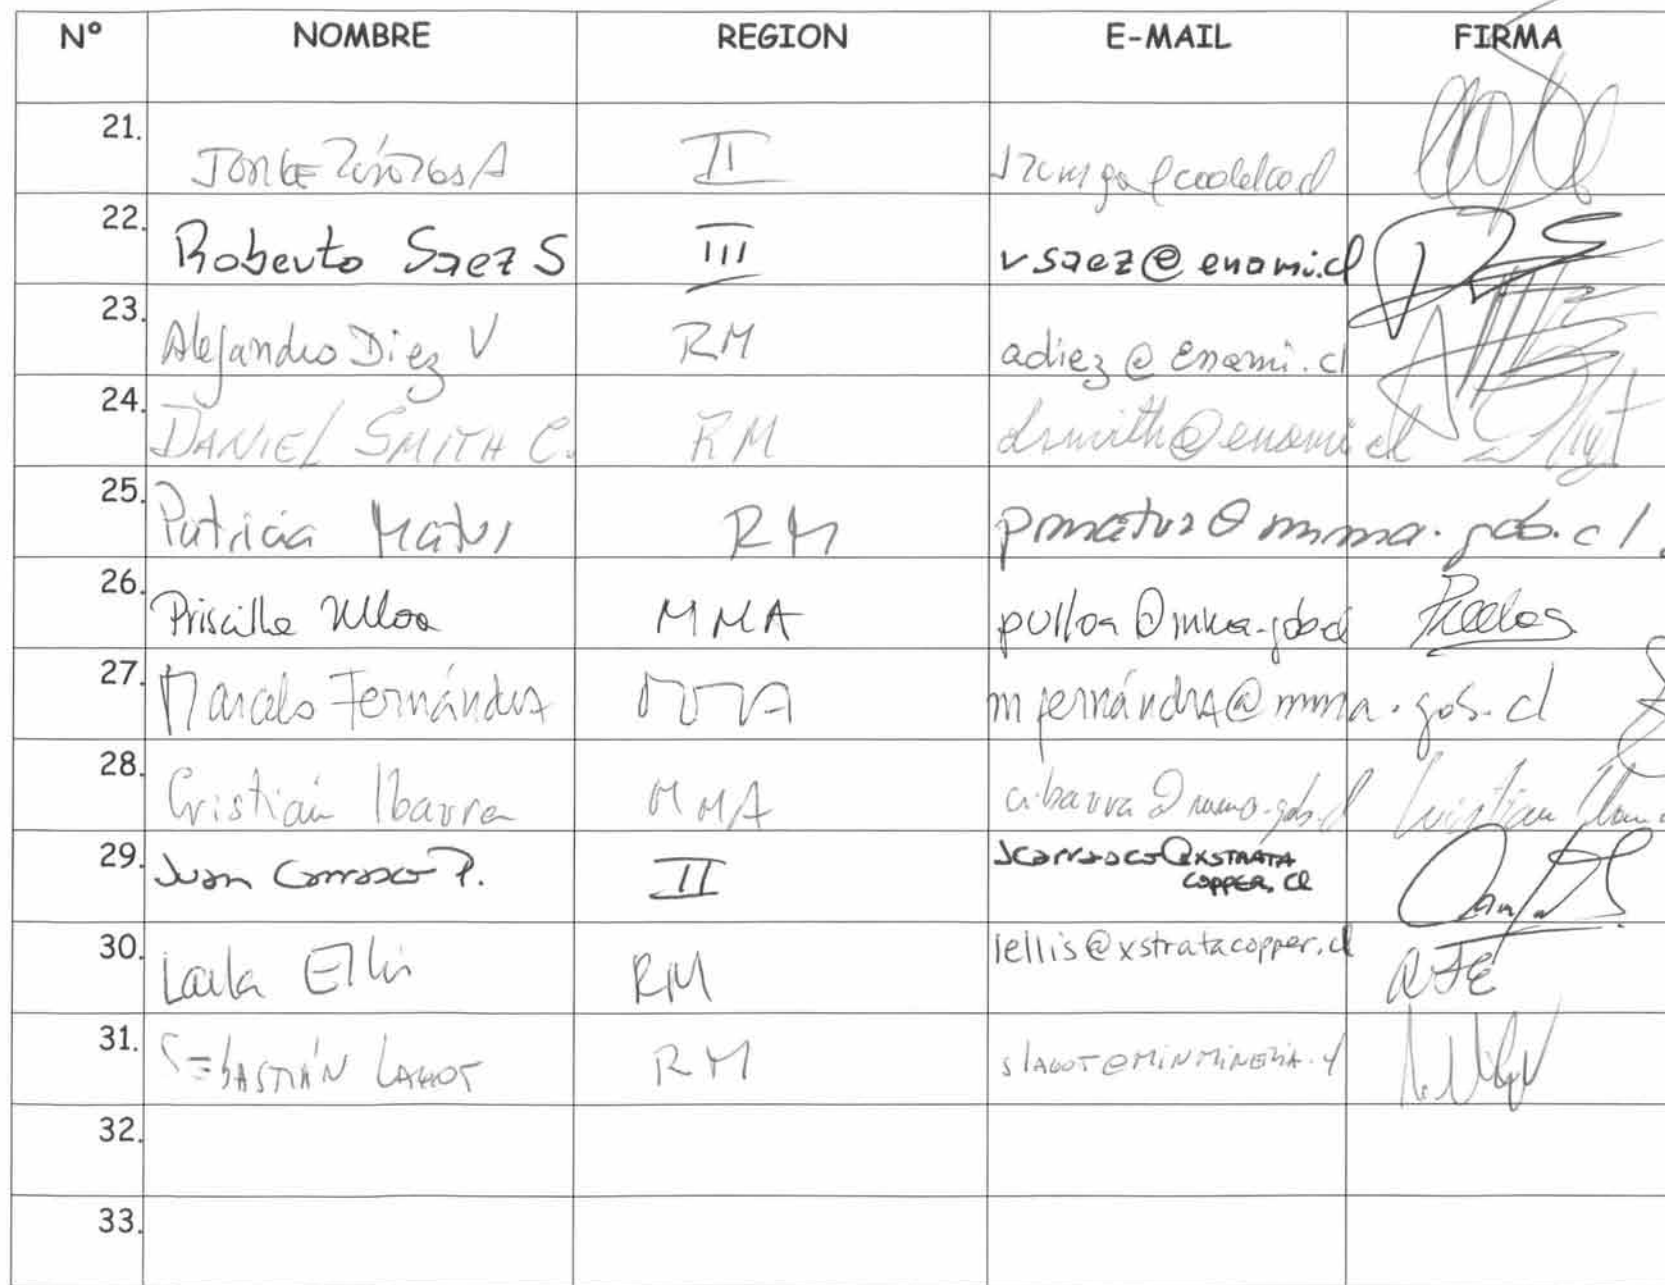 N° NOMBRE REGION E-MAIL FIRMA
21. II
22. Roberto Saez S III rsaez@enami.cl
23. Alejandro Diez V RM adiez@enami.cl
24. DANIEL SMITH C. RM dsmith@enami.cl
25. Patricia Matus RM pmatus@mma.gob.cl
26. Priscilla Ulloa MMA pulloa@mma.gob.cl
27. Marcelo Fernández MMA mfernández@mma.gob.cl
28. Cristián Ibarra MMA cibarra@mma.gob.cl Cristian
29. Juan Carrasco P. II Jcarrasco@XSTRATA
COPPER.CL
30. Laila Ellis RM lellis@xstratacopper.cl
31. SEBASTIÁN RM
32.
33.